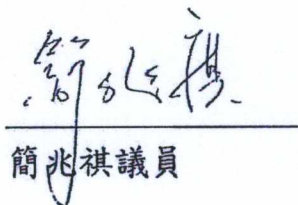 簡兆祺
簡兆祺議員